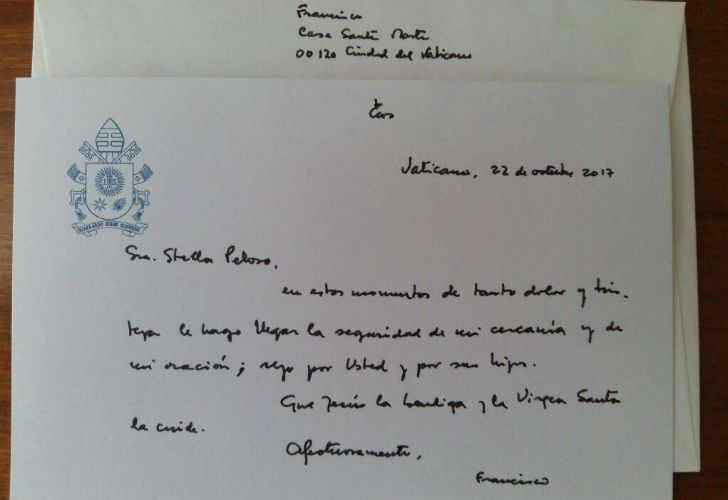 Francisco
Casa Santa Marta
00120 Ciudad del Vaticano
Vaticano, 22 de octubre 2017
Sra. Stella Peloso,
en estos momentos de tanto dolor y tris-
teza le hago llegar la seguridad de mi cercanía y de
mi oración; rezo por Usted y por sus hijos.
Que Jesús la bendiga y la Virgen Santa
la cuide.
Afectuosamente,
Francisco